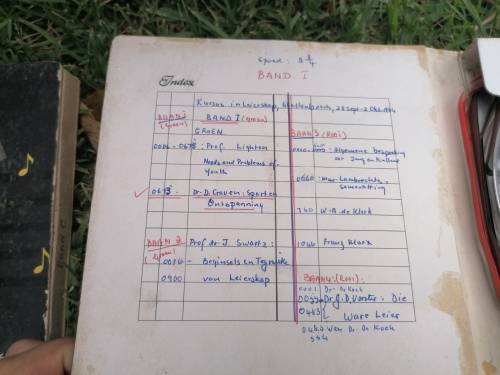 Spoed: 3 3/4
BAND I
Index
Kursus in Leierskap, 28 Sept-2 Okt
BAAN I BAND I (Groen)
(Groen) GROEN
0000-0675: Prof. Lighton
Needs and Problems of
Youth
0675: Dr. D. Craven: Sport en
Ontspanning
BAAN 2 Prof dr. J. Swartz:
(Groen) 0010 - Beginsels en Tegnieke
0900 van Leierskap
BAAN 3 (Rooi)
: Algemene bespreking
oor Jeug en Kultuur
0560: Mnr. Lambrechts:
Samevatting
740 W. A. de Klerk
1040 Franz Marx
BAAN 4: (Rooi):
0001 Dr. Koch
Dr J. D. Vorster: Die
0483 Ware Leier
0483 Wee Dr. De Koch
544